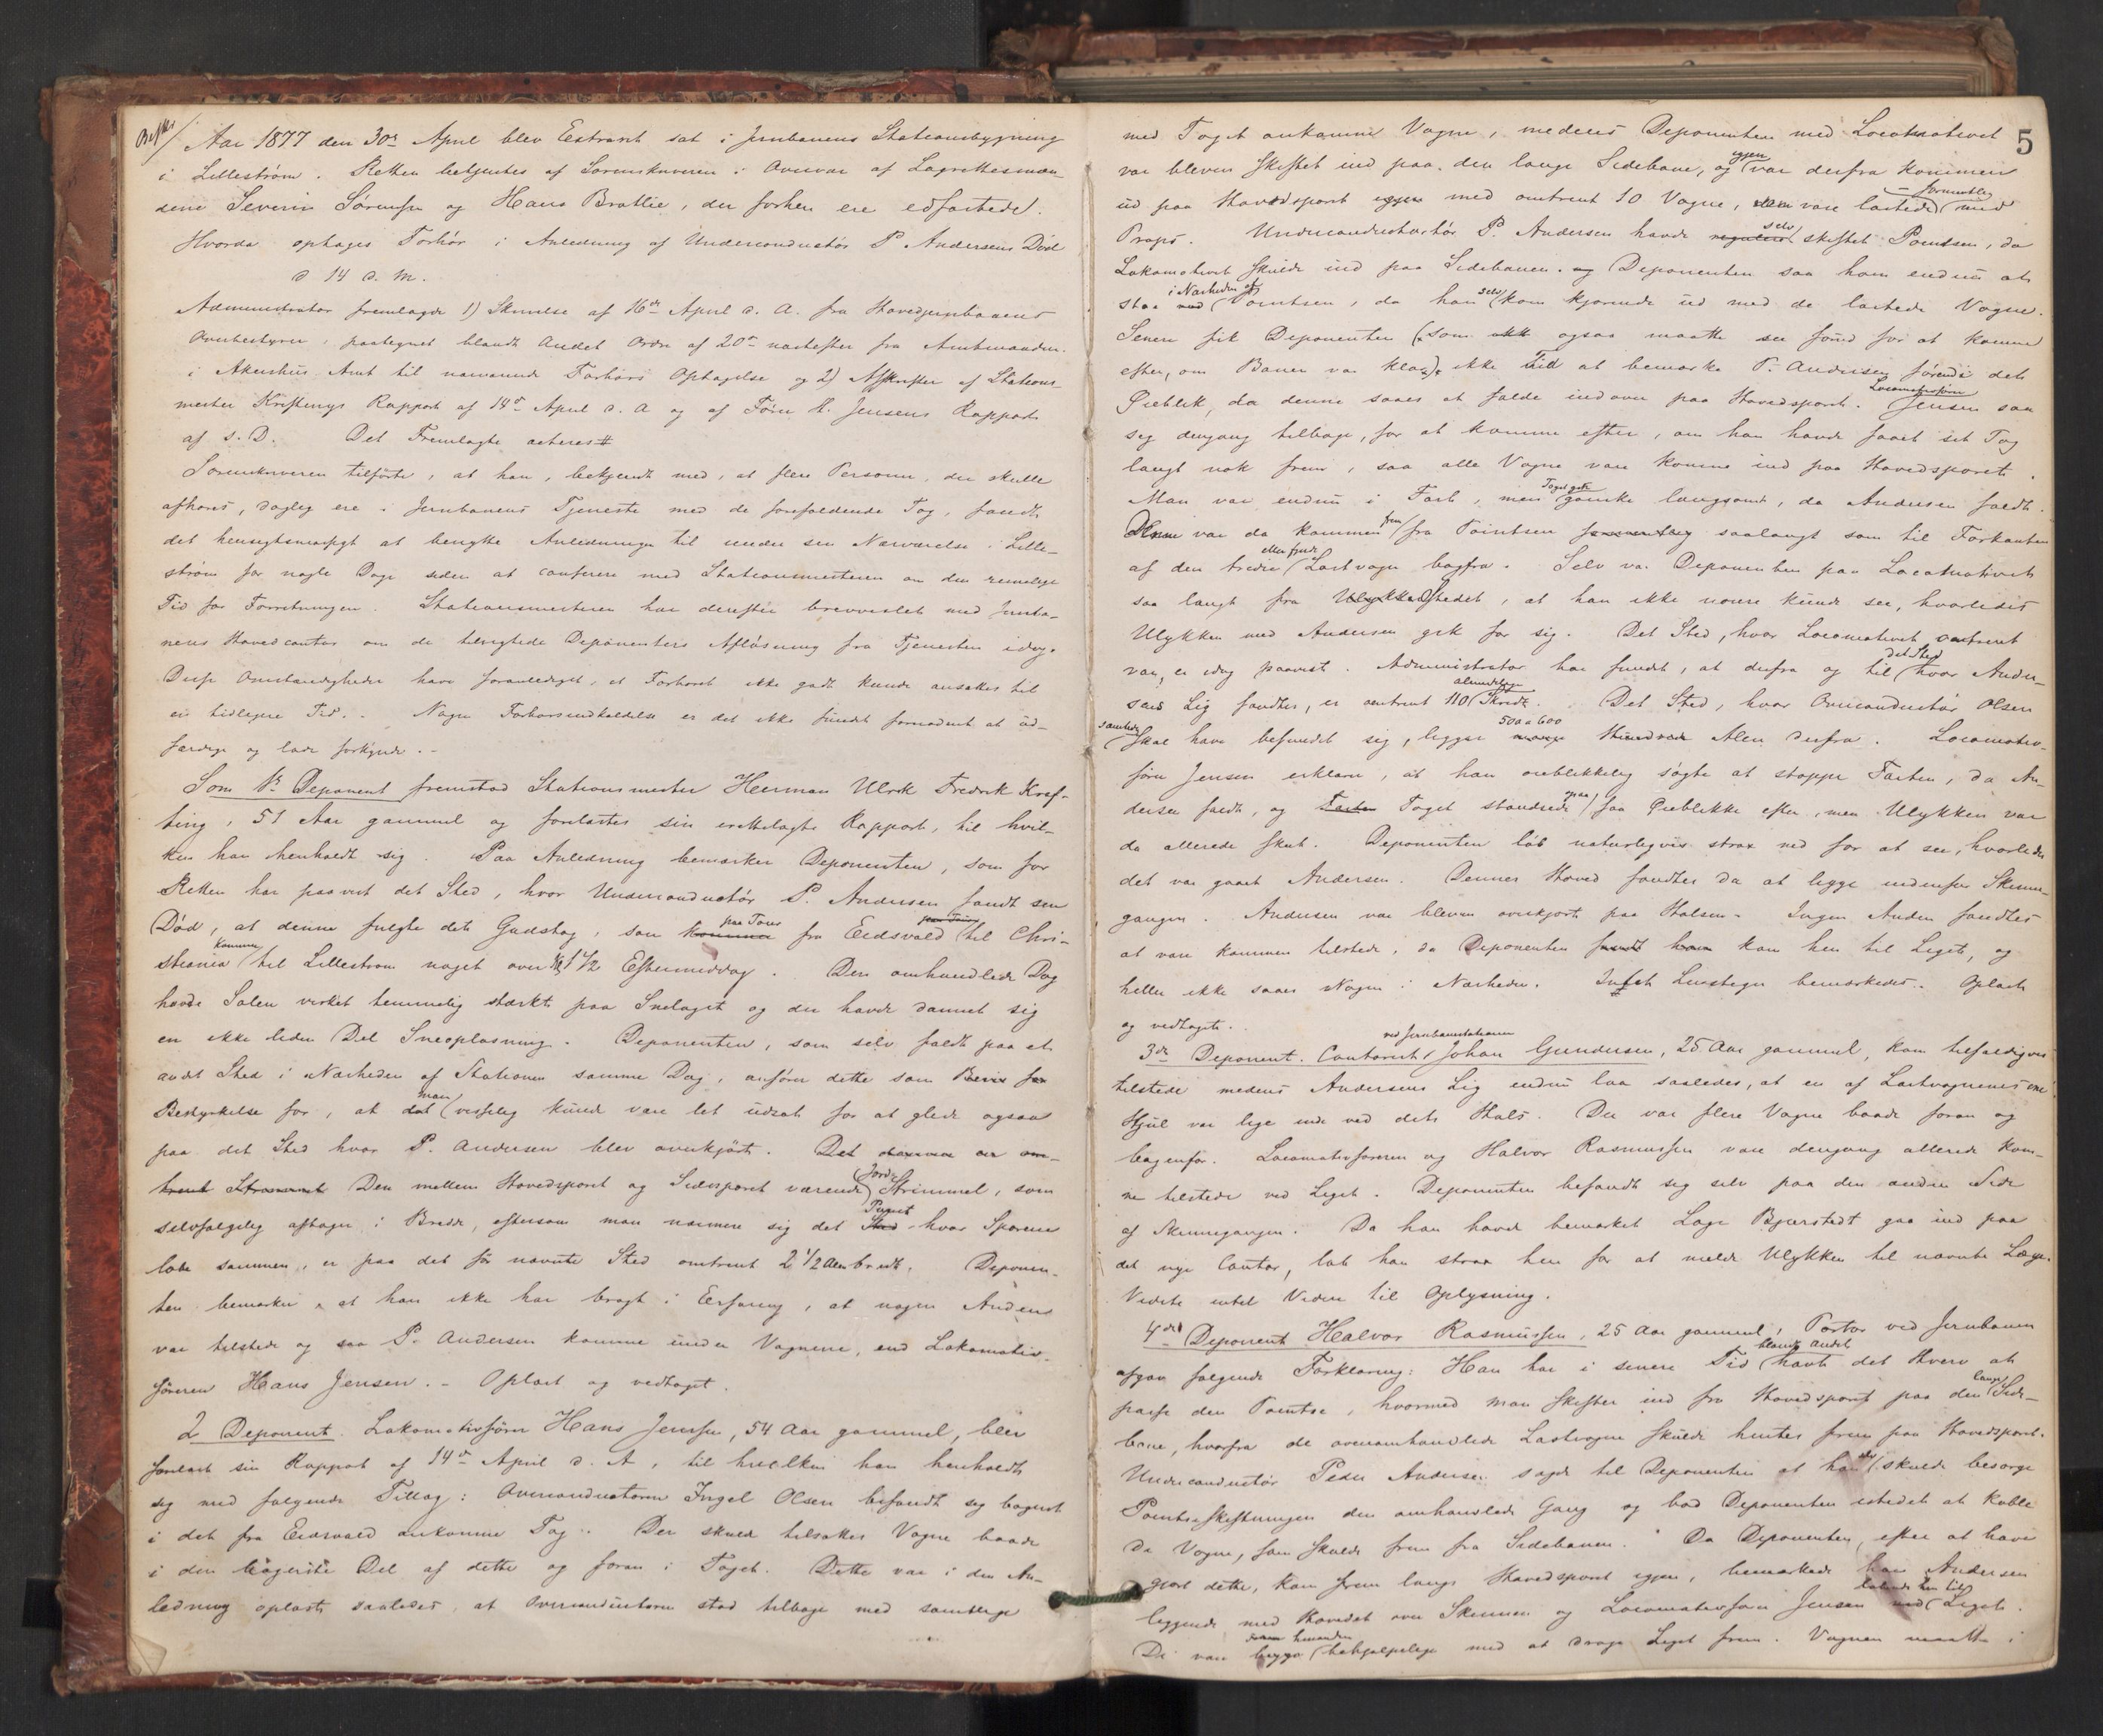 Beskr
Aar 1877 den 30te April blev Extraret sat i Jernbanens Stationsbygning
i Lillestrøm. Retten betjentes af Sorenskriveren i Overvær af Lagrettesmæn-
dene Severin Sørensen og Hans Brattlie, der forhen ere edfæstede.
Hvorda optages Forhør i Anledning af Underconductør P. Andersens Død
d. 14 d. M.
Administrator fremlagde 1) Skrivelse af 16de April d. A. fra Hovedjernbanens
Overbestyrer, paategnet blandt Andet Ordre af 20de næstefter fra Amtmanden
i Akershus Amt til nærværende Forhørs Optagelse og 2) Afskrifter af Stations-
mester Kreftings Rapport af 14de April d. A. og af Fører H. Jensens Rapport
af s. D. Det Fremlagte acteres #
Sorenskriveren tilførte, at han, bekjendt med, at flere Personer, der skulle
afhøres, daglig ere i Jernbanens Tjeneste med de forefaldende Tog, fandt
det hensigtsmæssigt at benytte Anledningen til under sin Nærværelse i Lille-
strøm for nogle Dage siden at conferere med Stationsmesteren om den rimelige
Tid for Forretningen. Stationsmesteren har derefter brevvexlet med Jernba-
nens Hovedcontor om de tilsigtede Deponenters Afløsning fra Tjenesten idag.
Disse Omstændigheder have foranlediget, at Forhøret ikke godt kunde ansættes til
en tidligere Tid. Nogen Forhørsindkaldelse er det ikke fundet fornødent at ud-
færdige og lade forkynde. -
Som 1ste Deponent fremstod Stationsmester Herman Ulrik Fredrik Kref-
ting, 51 Aar gammel og forelæstes sin irettelagte Rapport, til hvil-
ken han henholdt sig. Paa Anledning bemærker Deponenten, som for
Retten har paavist det Sted, hvor Underconductør P. Andersen fandt sin
Død, at denne fulgte det Godstog, som kommer paa Tour fra Eidsvold paa Tour til Chri-
stiania kommer til Lillestrøm noget over Kl 1 1/2 Eftermiddag. Den omhandlede Dag
havde Solen virket temmelig stærkt paa Snelaget og der havde dannet sig
en ikke liden Del Sneopløsning. Deponenten, som selv faldt paa et
andet Sted i Nærheden af Stationen samme Dag, anfører dette som Bevis for
Bestyrkelse for, at det man visselig kunde være let udsat for at glide ogsaa
paa det Sted hvor P. Andersen blev overkjørt. Det
Den mellem Hovedsporet og Sidesporet værende Jord Strimmel, som
selvfølgelig aftager i Bredde, eftersom man nærmer sig det Sted Punct hvor Sporene
løbe sammen, er paa det før nævnte Sted omtrent 2 1/2 Alen bredt. Deponen-
ten bemærker, at han ikke har bragt i Erfaring, at nogen Anden
var tilstede og saa P. Andersen komme under Vognene, end Lokomotiv-
føreren Hans Jensen. - Oplæst og vedtaget.
2 Deponent. Lokomotivfører Hans Jensen, 54 Aar gammel, blev
forelæst sin Rapport af 14de April d. A., til hvilken han henholdt
sig med følgende Tillæg: Overconductøren Ingel Olsen befandt sig bagerst
i det fra Eidsvold ankomne Tog. Der skulde tilsættes Vogne baade
i den bagerste Del af dette og foran i Toget. Dette var i den An-
ledning opløst saaledes, at Overconductøren stod tilbage med samtlige
5
med Toget ankomne Vogne, medens Deponenten med Locomotivet
var bleven skiftet ind paa den lange Sidebane, og igjen var derfra kommen
ud paa Hovedsporet igjen med omtrent 10 Vogne, som vare lastede formentlig med
Props. Underconductør P. Andersen havde reguleret selv skiftet Pointsen, da
Lokomotivet skulde ind paa Sidebanen. og Deponenten saa ham endnu at
staa ved i Nærheden af Pointsen, da han selv kom kjørende ud med de lastede Vogne.
Senere fik Deponenten (som ogsaa maatte see forud for at komme
efter, om Banen var klar) ikke Tid at bemærke P. Andersen førend i det
Øieblik, da denne saaes at falde indover paa Hovedsporet. Locomotivfører Jensen saa
sig dengang tilbage, for at komme efter, om han havde faaet sit Tog
langt nok frem, saa alle Vogne vare komne ind paa Hovedsporet.
Man var endnu i Fart, men Toget gik ganske langsomt, da Andersen faldt.
Denne var da kommen frem fra Pointsen formentlig saalangt som til Forkanten
af den tredie eller fjerde Lastvogn bagfra. Selv var Deponenten paa Locomotivet
saa langt fra Ulykkesstedet, at han ikke nøiere kunde see, hvorledes
Ulykken med Andersen gik for sig. Det Sted, hvor Locomotivet omtrent
var, er idag paavist. Administrator har fundet, at derfra og til det Sted hvor Ander-
sens Lig fandtes, er omtrent 110 almindelige Skridt. Det Sted, hvor Overconductør Olsen
samtidig skal have befundet sig, ligger mange 500 a 600 Hundrede Alen derfra. Locomotiv-
fører Jensen erklærer, at han øieblikkelig søgte at stoppe Farten, da An-
dersen faldt, og Farten Toget standsede ogsaa faa Øieblikke efter, men Ulykken var
da allerede skeet. Deponenten løb naturligvis strax ned for at see, hvorledes
det var gaaet Andersen. Dennes Hoved fandtes da at ligge indenfor Skinne-
gangen. Andersen var bleven overkjørt paa Halsen. Ingen Anden fandtes
at være kommen tilstede, da Deponenten fandt ham kom hen til Liget, og
heller ikke saaes Nogen i Nærheden. Intet Livstegn bemærkedes. Oplæst
og vedtaget.
3die Deponent. Contorist ved Jernbanestationen Johan Gundersen, 25 Aar gammel, kom tilfældigvis
tilstede medens Andersens Lig endnu laa saaledes, at en af Lastvognenes ene
Hjul var lige inde ved dets Hals. Der var flere Vogne baade foran og
bagenfor. Locomotivføreren og Halvor Rasmussen vare dengang allerede kom-
ne tilstede ved Liget. Deponenten befandt sig selv paa den anden Side
af Skinnegangen. Da han havde bemærket Læge Bjørstedt gaa ind paa
det nye Contor, løb han strax hen for at melde Ulykken til nævnte Læge.
Vidste intet Videre til Oplysning.
4de Deponent Halvor Rasmussen, 25 Aar gammel, Portør ved Jernbanen
afgav følgende Forklaring: Han har i senere Tid blandt Andet havt det Hverv at
passe den Pointse, hvormed man skifter ind fra Hovedsporet paa den lange Side-
bane, hvorfra de ovenomhandlede Lastvogne skulde hentes frem paa Hovedsporet.
Underconductør Peder Andersen sagde til Deponenten at han selv skulde besørge
Pointseskiftningen den omhandlede Gang og bad Deponenten istedet at koble
de Vogne, som skulde frem fra Sidebanen. Da Deponenten, efter at have
gjort dette, kom frem langs Hovedsporet igjen, bemærkede han Andersen
liggende med Hovedet over Skinnen og Locomotivfører Jensen ved løbende hen til Liget.
De vare begge hinanden behjælpelige med at drage Liget frem. Vognen maatte i